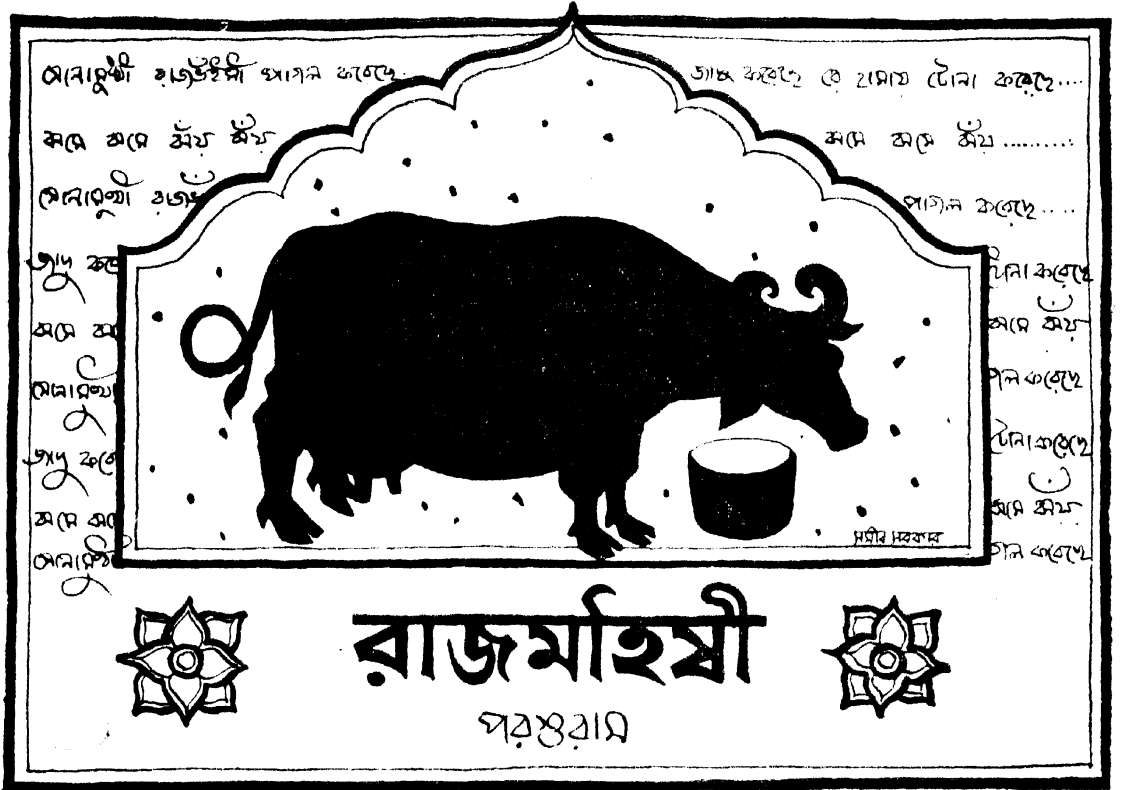 সোনামুখী রাজভঁইসী পাগল করেছে.. জাদু করেছে রে হামায় টোনা করেছে....
ঝমে ঝমে ঝঁয় ঝঁয় ঝমে ঝমে ঝঁয়.........
সোনামুখী রাজভঁ পাগল করেছে....
জাদু করে টোনা করেছে
ঝমে ঝমে ঝমে ঝঁয়
সোনামুখী গল করেছে
জাদু করে টোনা করেছে
ঝমে ঝমে ঝমে ঝঁয়
সোনামুখী গল করেছে
সমীর সরকার
রাজমহিষী
পরশুরাম